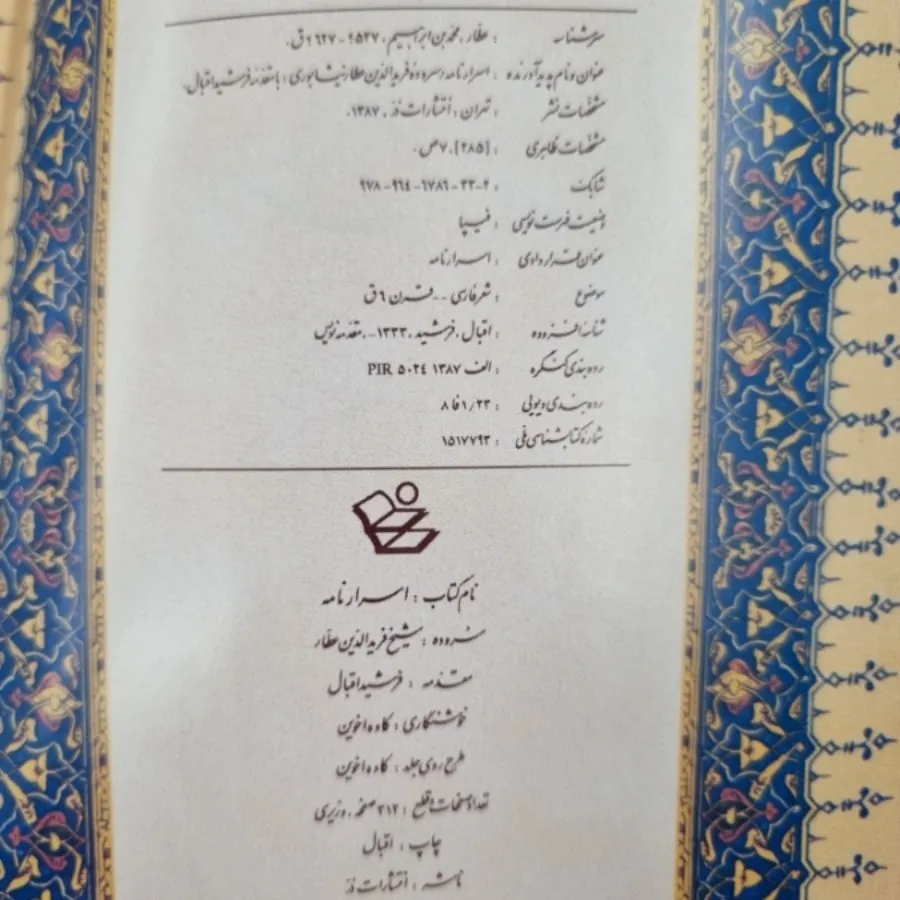 سرشناسه : عطار، محمد بن ابراهیم، ۵۳۷؟ - ۶۲۷؟ ق.
عنوان و نام پدیدآورنده : اسرارنامه / سروده فریدالدین عطار نیشابوری؛ با مقدمه فرشید اقبال.
مشخصات نشر : تهران : انتشارات دُر، ۱۳۸۷.
مشخصات ظاهری : [۲۸۵]، ۷ ص.
شابک : ۲-۳۳-۶۷۸۶-۹۶۴-۹۷۸
وضعیت فهرست نویسی : فیپا
عنوان قراردادی : اسرارنامه
موضوع : شعر فارسی -- قرن ۶ ق
شناسه افزوده : اقبال، فرشید، ۱۳۳۳-، مقدمه نویس
رده بندی کنگره : الف ۱۳۸۷ ۵۰۲۴ PIR
رده بندی دیویی : ۱/۲۳ فا ۸
شماره کتابشناسی ملی : ۱۵۱۷۷۹۳
نام کتاب : اسرارنامه
سروده : شیخ فریدالدین عطار
مقدمه : فرشید اقبال
خوشنگاری : کاوه اخوین
طرح روی جلد : کاوه اخوین
تعداد صفحات و قطع : ۳۱۲ صفحه، وزیری
چاپ : اقبال
ناشر : انتشارات دُر